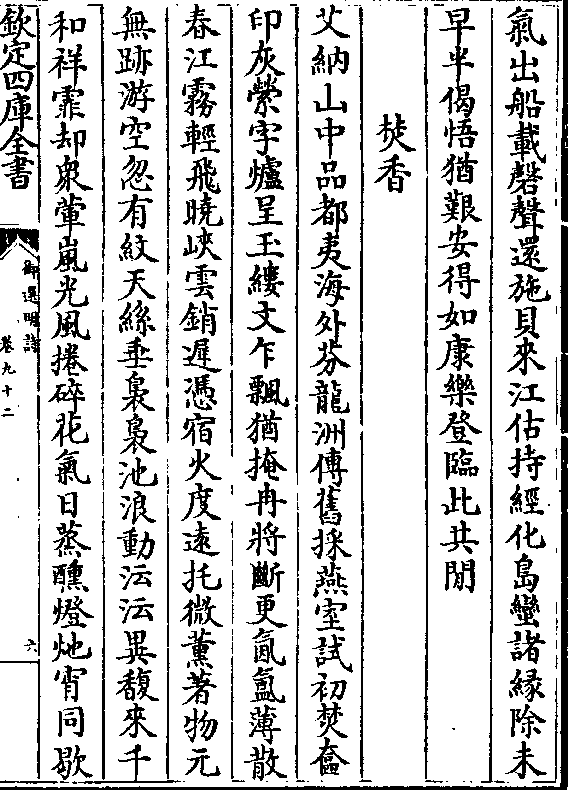 氣出船載磬聲還施貝來江估持經化島蠻諸緣除未
早半偈悟猶艱安得如康樂登臨此共閒
焚香
艾納山中品都夷海外芬龍洲傳舊採燕室試初焚奩
印灰縈字爐呈玉縷文乍飄猶掩冉將斷更氤氳薄散
春江霧輕飛曉峽雲銷遲憑宿火度遠托微薰著物元
無跡游空忽有紋天絲垂裊裊池浪動沄沄異馥來千
和祥霏却衆葷嵐光風捲碎花氣日蒸醺燈灺宵同歇
欽定四庫全書
御選明詩
卷九十二
六